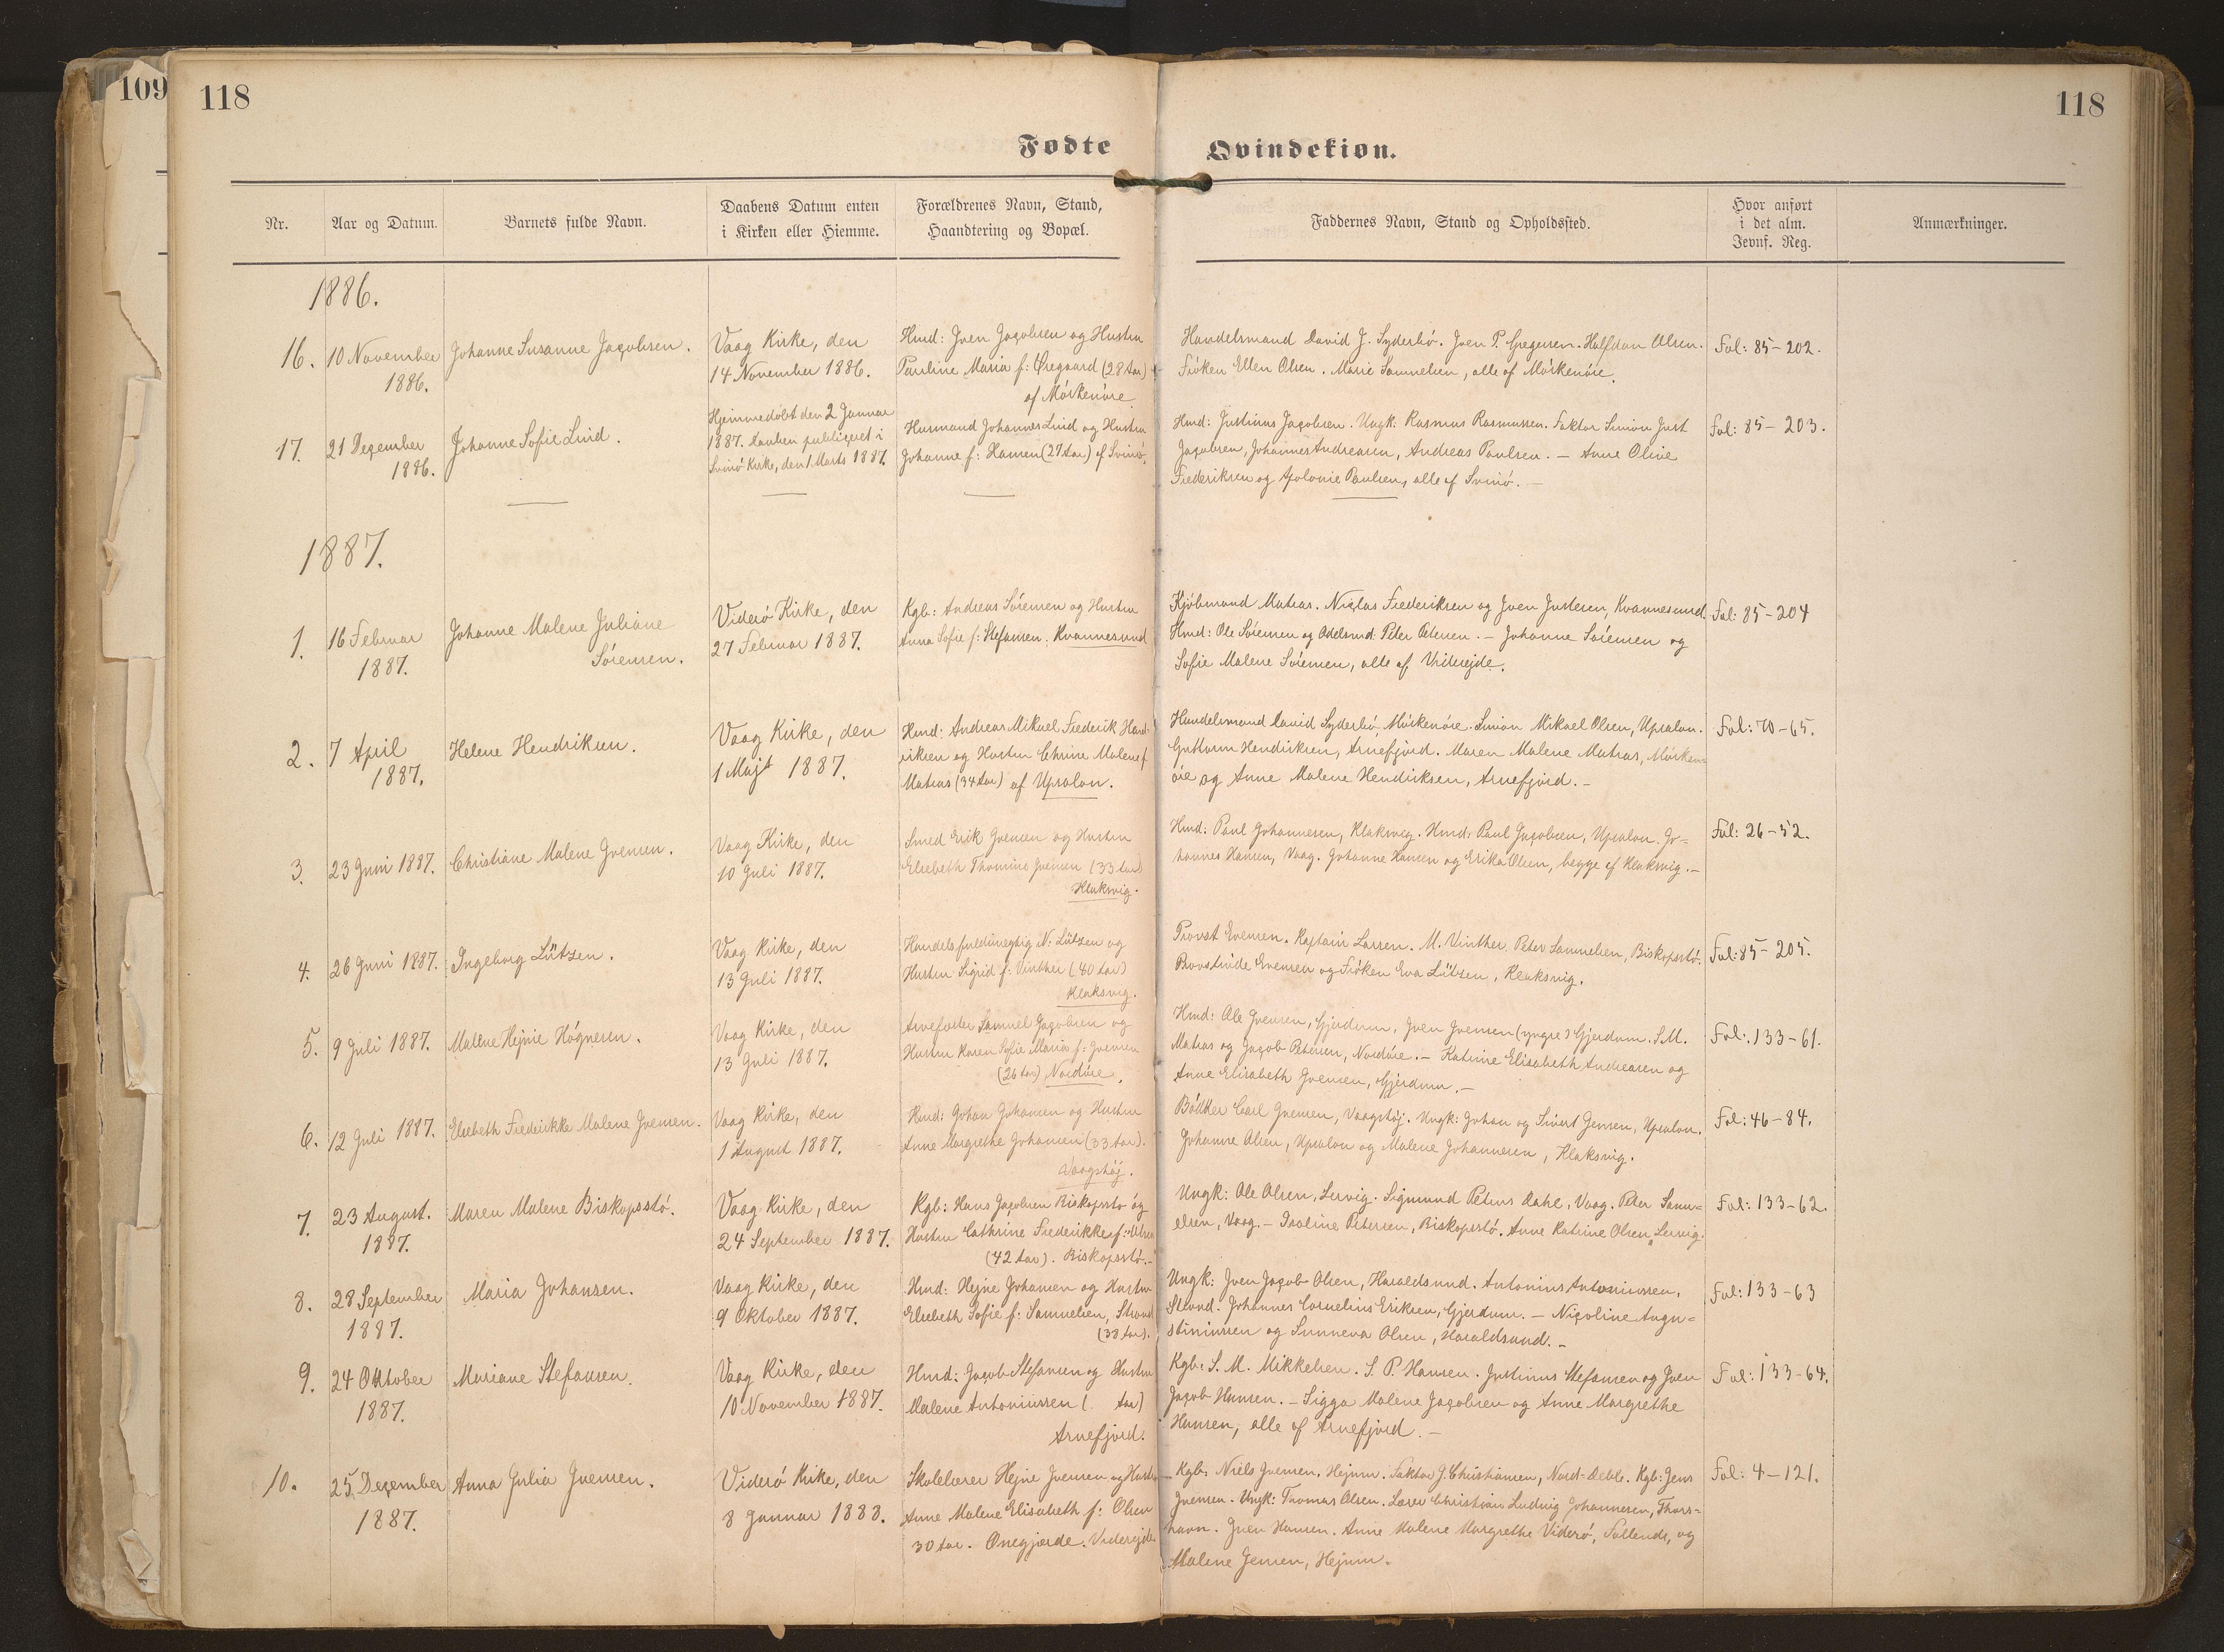 109
118
118
Fødte
Qvindekiøn.
Nr.
Aar og Datum.
Barnets fulde Navn.
Daabens Datum enten
i Kirken eller Hiemme.
Forældrenes Navn, Stand,
Haandtering og Bopæl.
Faddernes Navn, Stand og Opholdssted.
Hvor anført
i det alm.
Jevnf. Reg.
Anmærkninger.
1886.
16.
10 November
1886.
Johanne Susanne Jacobsen.
Vaag Kirke, den
14 November 1886.
Hmd: Joen Jacobsen og Hustru
Pauline Maria f: Øregaard (28 Aar)
af Mórkenóre.
Handelsmand David J. Syderbó. Joen P. Gregersen. Halfdan Olsen.
Fróken Ellen Olsen. Marie Samuelsen, alle af Mórkenóre.
Fol: 85-202.
17.
21 Deçember
1886.
Johanne Sofie Lind.
Hjemmedóbt den 2 Januar
1887. Daaben publiçeret i
Svinó Kirke, den 1 Marts 1887.
Husmand Johannes Lind og Hustru
Johanne f: Hansen (27 Aar) af Svinó.
Hmd: Justinus Jaçobsen. Ungk: Rasmus Rasmussen. Faktor Simon Just
Jaçobsen, Johannes Andreasen, Andreas Paulsen. — Anne Olive
Frederiksen og Apolonie Paulsen, alle af Svinó. —
Fol: 85-203.
1887.
1.
16 Februar
1887.
Johanne Malene Juliane
Sórensen.
Videró Kirke, den
27 Februar 1887.
Kgb: Andreas Sórensen og Hustru
Anna Sofie f: Stefansen. Kvannesund
Kjóbmand Matras. Niclas Frederiksen og Joen Justesen, Kvannesund.
Hmd: Ole Sórensen og Odelsmd: Peter Petersen. — Johanne Sórensen og
Sofie Malene Sórensen, alle af Viderejde.
Fol: 85-204
2.
7 April
1887.
Helene Hendriksen.
Vaag Kirke, den
1 Majt 1887.
Hmd: Andreas Mikael Frederik Hend-
riksen og Hustru Chrine Malene f
Matras (34 Aar) af Upsalon.
Handelsmand David Syderbó, Mórkenóre. Simon Mikael Olsen, Upsalon.
Guttorm Hendriksen, Arnefjord. Maren Malene Matras, Mórken=
óre og Anne Malene Hendriksen, Arnefjord. —
Fol: 70-65.
3.
23 Juni 1887.
Christiane Malene Joensen.
Vaag Kirke, den
10 Juli 1887.
Smed Erik Joensen og Hustru
Elsebeth Thomine Joensen (33 Aar)
Klaksvig.
Hmd: Paul Johannesen, Klaksvig. Hmd: Paul Jaçobsen, Upsalon. Jo-
hannes Hansen, Vaag. Johanne Hansen og Erika Olsen, begge af Klaksvig. —
Fol: 26-52.
4.
26 Juni 1887.
Ingeborg Lützen.
Vaag Kirke, den
13 Juli 1887.
Handelsfuldmægtig N. Lützen og
Hustru Sigrid f: Vinther (40 Aar)
Klaksvig.
Provst Evensen. Kaptain Larsen. M. Vinther. Peter Samuelsen, Biskopsstó.
Provstinde Evensen og Fróken Eva Lützen, Klaksvig.
Fol: 85-205.
5.
9 Juli 1887.
Malene Hejnie Hógnesen.
Vaag Kirke, den
13 Juli 1887.
Arvefæster Samuel Jaçobsen og
Hustru Karen Sofie Maria f: Joensen
(26 Aar) Nordóre.
Hmd: Ole Joensen, Gjerdum, Joen Joensen (yngre) Gjerdum. S.M.
Matras og Jaçob Petersen, Nordóre. — Katrine Elisabeth Andreasen og
Anne Elisabeth Joensen, Gjerdum. —
Fol: 133-61.
6.
12 Juli 1887.
Elsebeth Frederikke Malene Joensen.
Vaag Kirke, den
1 August 1887.
Hmd: Johan Johansen og Hustru
Anne Margrethe Johansen (33 Aar).
Vaagshój.
Bódker Carl Joensen, Vaagshój. Ungk: Johan og Sivert Jensen, Upsalon.
Johanne Olsen, Upsalon og Malene Johannesen, Klaksvig.
Fol: 46-84.
7.
23 August.
1887.
Maren Malene Biskopsstó.
Vaag Kirke, den
24 September 1887.
Kgb: Hans Jaçobsen Biskopsstó og
Hustru Cathrine Frederikke f: Olsen
(42 Aar). Biskopsstó. —
Ungk: Ole Olsen, Lervig. Sigmund Peters Dahl, Vaag. Peter Samu=
elsen, Vaag. — Isoline Petersen, Biskopsstó. Anne Katrine Olsen, Lervig.
Fol: 133-62.
8.
28 September
1887.
Maria Johansen.
Vaag Kirke, den
9 Oktober 1887.
Hmd: Hejne Johansen og Hustru
Elsebeth Sofie f: Samuelsen, Strond
(38 Aar).
Ungk: Joen Jaçob Olsen, Haraldsund. Antonius Antoniussen,
Strond. Johannes Cornelius Eriksen, Gjerdum. — Niçoline Augu=
stinussen og Sunneva Olsen, Haraldsund. —
Fol: 133-63
9.
24 Oktober
1887.
Mariane Stefansen.
Vaag Kirke, den
10 November 1887.
Hmd: Jaçob Stefansen og Hustru
Malene Antoniussen ( Aar)
Arnefjord.
Kgb: S. M. Mikkelsen. S. P. Hansen. Justinus Stefansen og Joen
Jaçob Hansen. — Sigga Malene Jaçobsen og Anne Margrethe
Hansen, alle af Arnefjord. —
Fol: 133-64.
10.
25 Deçember
1887.
Anna Julia Joensen.
Videró Kirke, den
8 Januar 1888.
Skolelærer Hejne Joensen og Hustru
Anne Malene Elisabeth f: Olsen
30 Aar. Ónegjærde. Viderejde
Kgb: Niels Joensen, Hejnum. Faktor J. Christiansen, Nord=Deble. Kgb: Jens
Joensen. Ungk: Thomas Olsen. Lærer Christian Ludvig Johannesen, Thors=
havn. Joen Hansen. Anne Malene Margrethe Videró, Sallende, og
Malene Jensen, Hejnum.
Fol: 4-121.